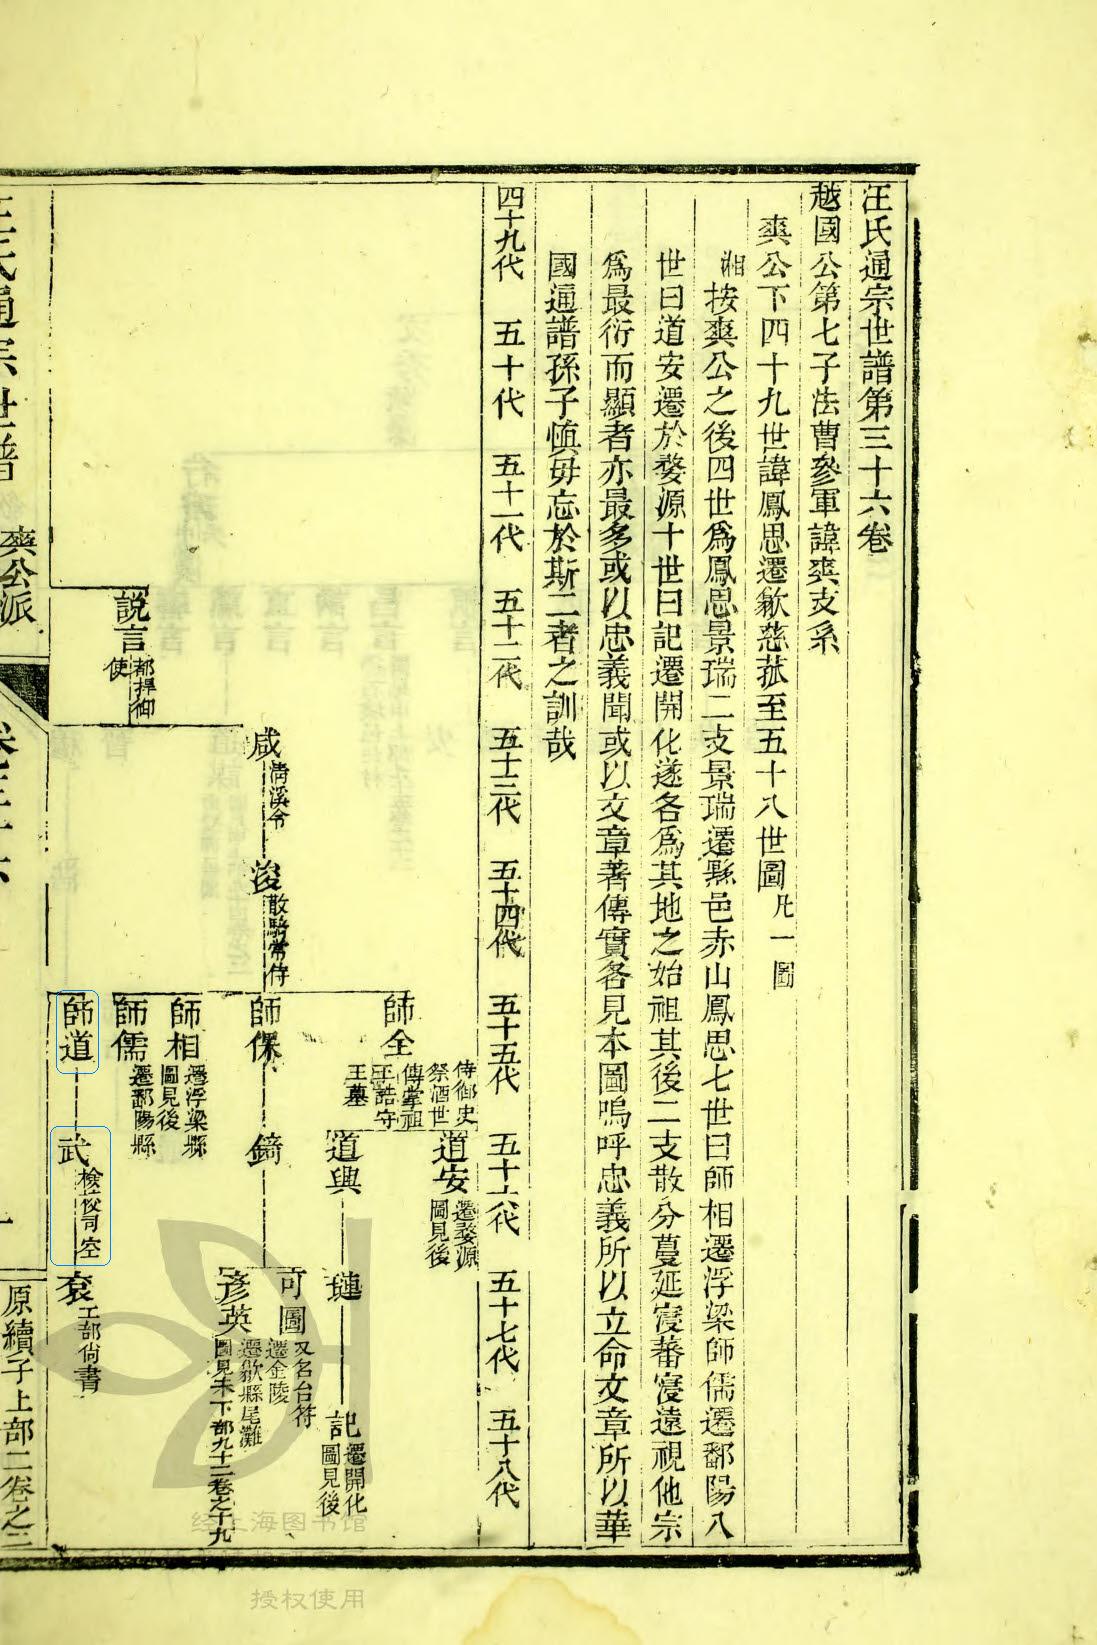 汪氏通宗世譜第三十六卷
越國公第七子法曹參軍諱爽支系
爽公下四十九世諱鳳思遷歙慈菰至五十八世圖凡一圖
湘按爽公之後四世爲鳳思景瑞二支景瑞遷黟邑赤山鳳思七世曰師相遷浮梁師儒遷鄱陽八
世曰道安遷於婺源十世曰記遷開化遂各爲其地之始祖其後二支散分蔓延寖蕃寖遠視他宗
爲最衍而顯者亦最多或以忠義聞或以文章著傳實各見本圖嗚呼忠義所以立命文章所以華
國通譜孫子愼毋忘於斯二者之訓哉
四十九代
五十代
五十一代
五十二代
五十三代
五十四代
五十五代
五十六代
五十七代
五十八代
說言
都押御
使
咸
淸溪令
浚
散騎常侍
師全
侍御史
祭酒世
傳掌祖
王誥守
王墓
師保
師相
遷浮梁縣
圖見後
師儒
遷鄱陽縣
師道
道安
遷婺源
圖見後
道興
鐈
武
檢挍司空
璉
可圖
又名台符
遷金陵
彥英
遷歙縣尾灘
圖見未下部九十二卷之十九
袞
工部尙書
記
遷開化
圖見後
汪氏通宗世譜
爽公派
卷三十六
一
原續子上部二卷之三
经上海图书馆
授权使用